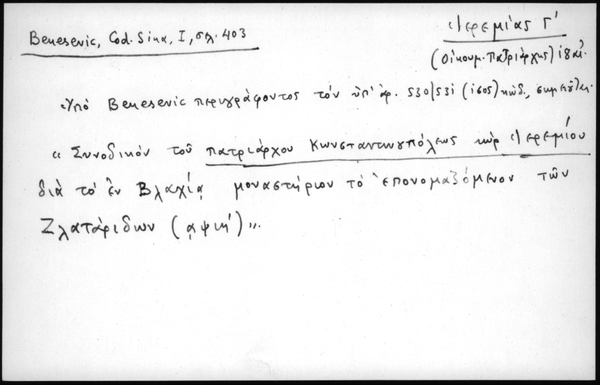 Benesevic, Cod. Sina, I, σελ. 403
Ἱερεμίας Γ'
(Οἰκουμ. Πατριάρχης) ιη αἰ.
Ὑπό Benesevic περιγράφοντος τόν ὑπ' ἀρ. 530/531 (ἴσος) κώδ., σημειοῦται:
« Συνοδικόν τοῦ πατριάρχου Κωνσταντινουπόλεως κύρ Ἱερεμίου
διά τό ἐν Βλαχίᾳ μοναστήριον τό ἐπονομαζόμενον τῶν
Ζλατάριδων (αψιή) ».